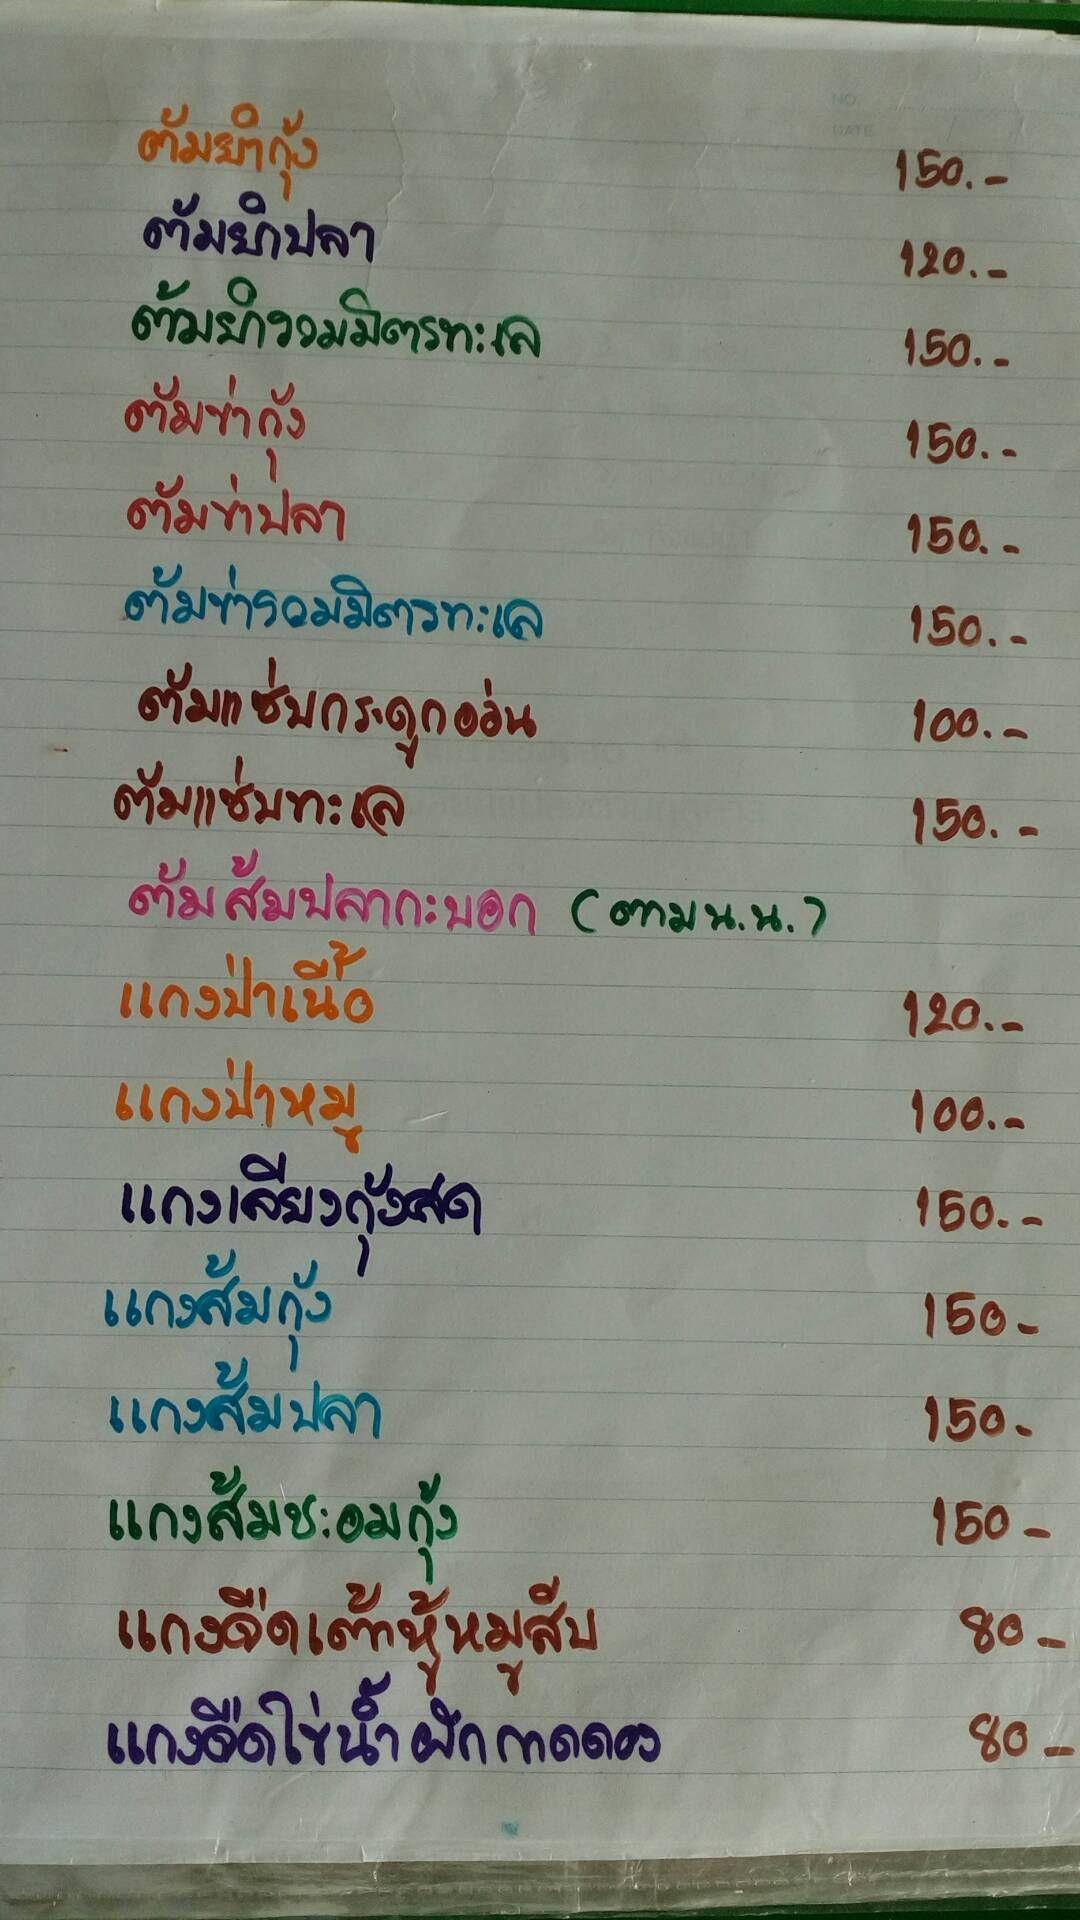 ต้มยำกุ้ง 150.-
ต้มยำปลา 120.-
ต้มยำรวมมิตรทะเล 150.-
ต้มข่ากุ้ง 150.-
ต้มข่าปลา 150.-
ต้มข่ารวมมิตรทะเล 150.-
ต้มแซ่บกระดูกอ่อน 100.-
ต้มแซ่บทะเล 150.-
ต้มส้มปลากะบอก (ตามน.น.)
แกงป่าเนื้อ 120.-
แกงป่าหมู 100.-
แกงเลียงกุ้งสด 150.-
แกงส้มกุ้ง 150-
แกงส้มปลา 150-
แกงส้มชะอมกุ้ง 150-
แกงจืดเต้าหู้หมูสับ 80-
แกงจืดไข่น้ำผักกาดดอง 80-